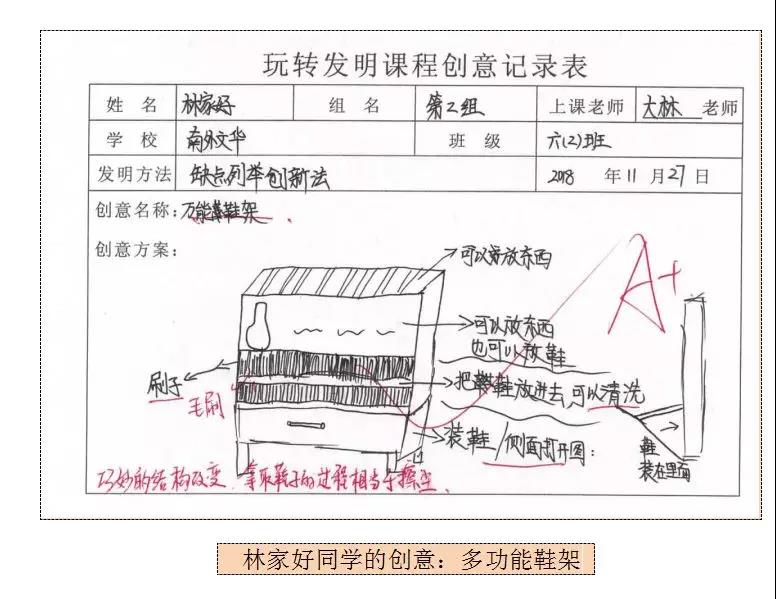 玩转发明课程创意记录表
姓 名 林家好 组 名 第2组 上课老师 大林 老师
学 校 南外文华 班 级 六(2)班
发明方法 缺点列举创新法 2018 年 11 月 27 日
创意名称：万能鞋架
创意方案：
可以放东西
可以放东西
也可以放鞋
刷子
毛刷
把鞋放进去，可以清洗
装鞋
侧面打开图：
鞋
装在里面
巧妙的结构改变，拿取鞋子的过程相当于擦尘.
林家好同学的创意：多功能鞋架